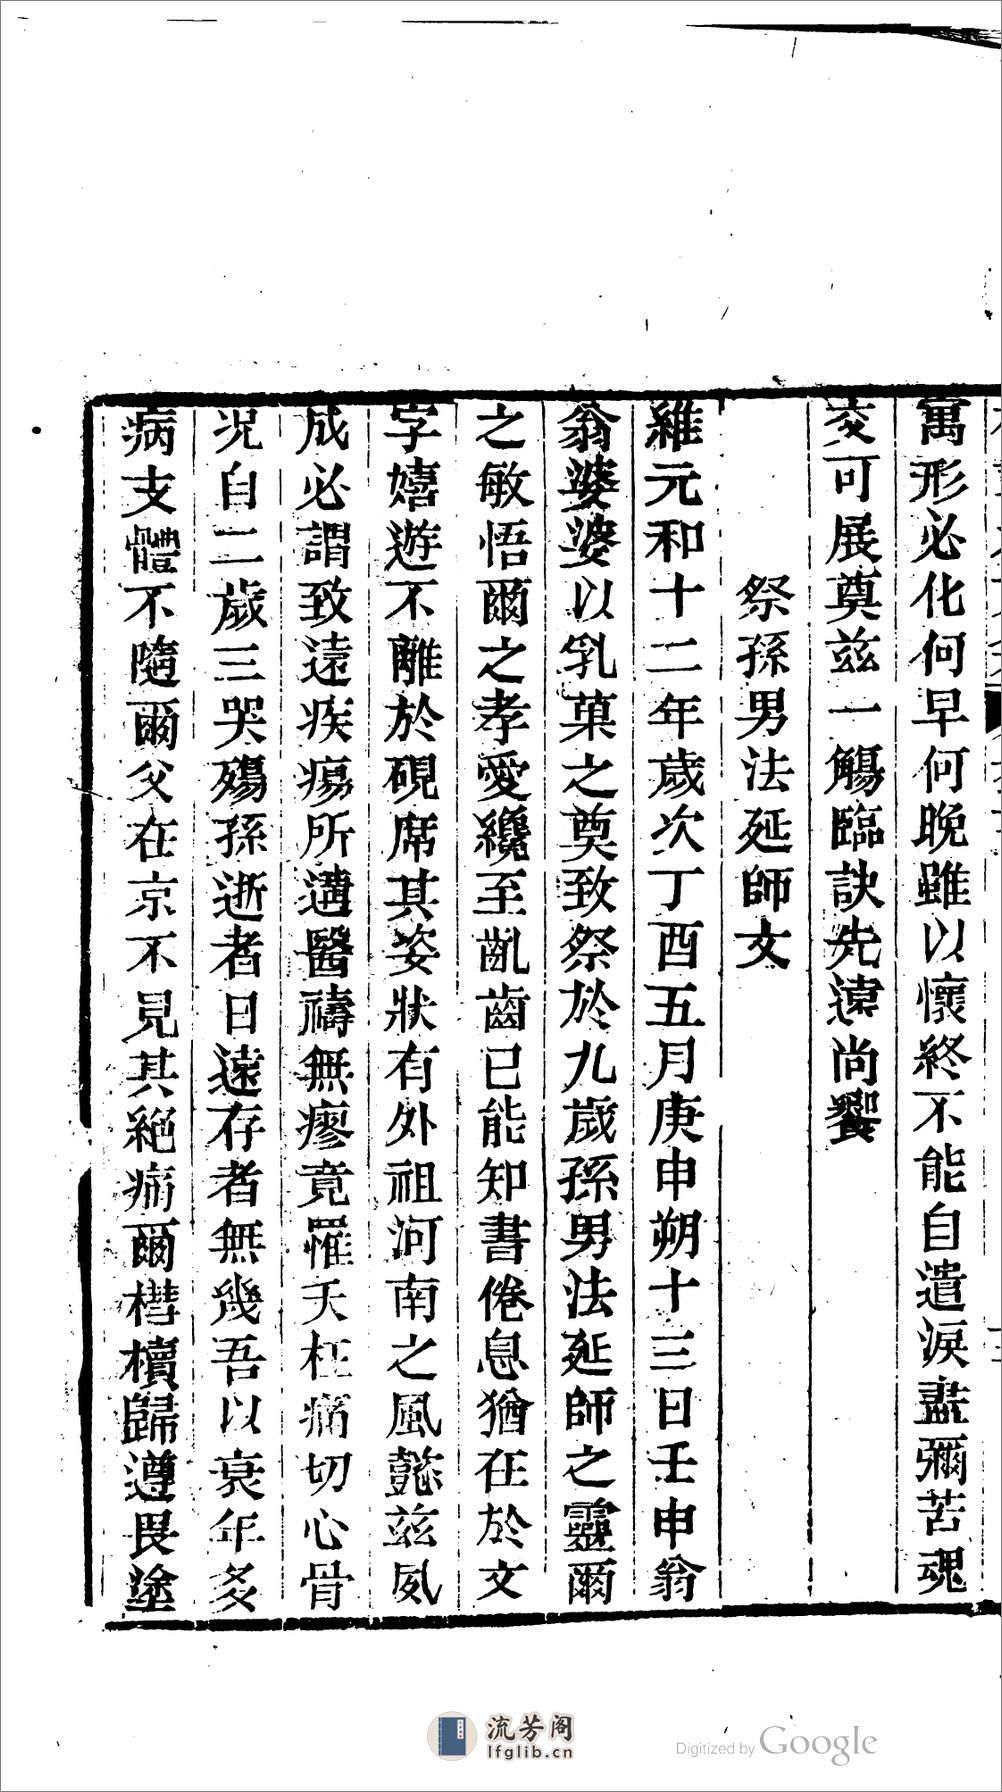 寓形必化何早何晚雖以懷終不能自遣淚盡彌苦魂
交可展奠兹一觴臨訣先遠尚饗
祭孫男法延師文
維元和十二年歲次丁酉五月庚申朔十三日壬申翁
翁婆婆以乳菓之奠致祭於九歲孫男法延師之靈爾
之敏悟爾之孝愛纔至齔齒已能知書倦息猶在於文
字嬉遊不離於硯席其姿狀有外祖河南之風懿兹夙
成必謂致遠疾瘍所遘醫禱無瘳竟罹夭枉痛切心骨
況自二歲三哭殤孫逝者日遠存者無幾吾以衰年多
病支體不隨爾父在京不見其絕痛爾槥櫝歸遵畏塗
流芳阁
lfglib.cn
Digitized by Google